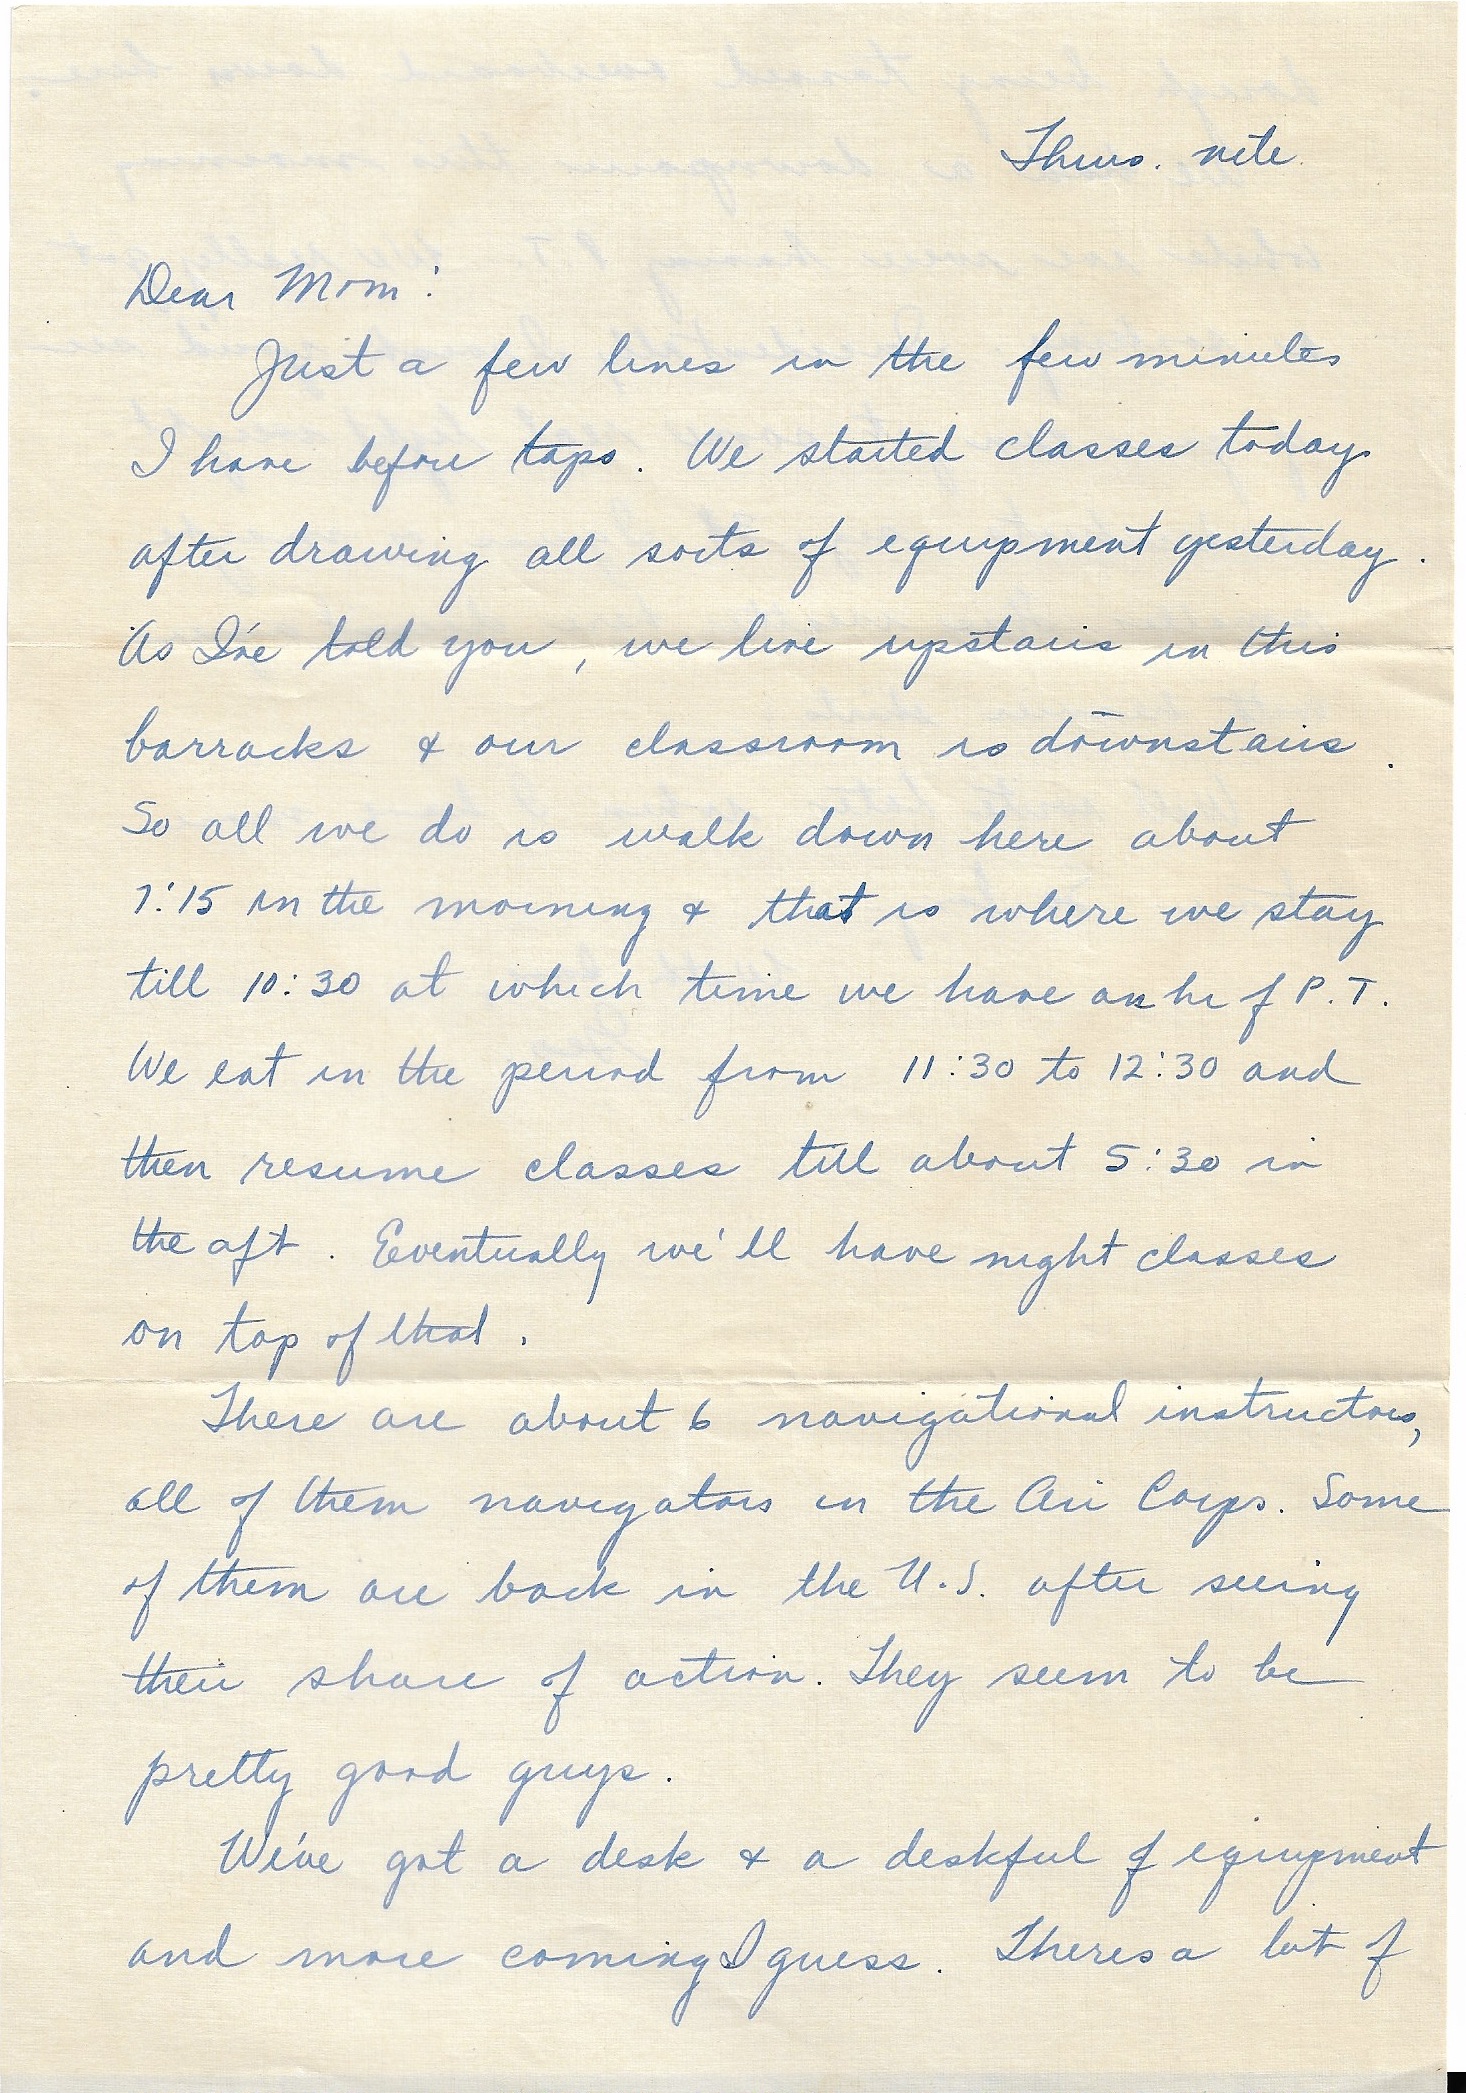 Thurs. nite.
Dear Mom:
Just a few lines in the few minutes
I have before taps. We started classes today
after drawing all sorts of equipment yesterday.
As I've told you, we live upstairs in this
barracks & our classroom is downstairs.
So all we do is walk down here about
7:15 in the morning & that is where we stay
till 10:30 at which time we have an hr of P.T.
We eat in the period from 11:30 to 12:30 and
then resume classes till about 5:30 in
the aft. Eventually we'll have night classes
on top of that.
There are about 6 navigational instructors,
all of them navigators in the Air Corps. Some
of them are back in the U.S. after seeing
their share of action. They seem to be
pretty good guys.
We've got a desk & a deskful of equipment
and more coming I guess. Theres a lot of